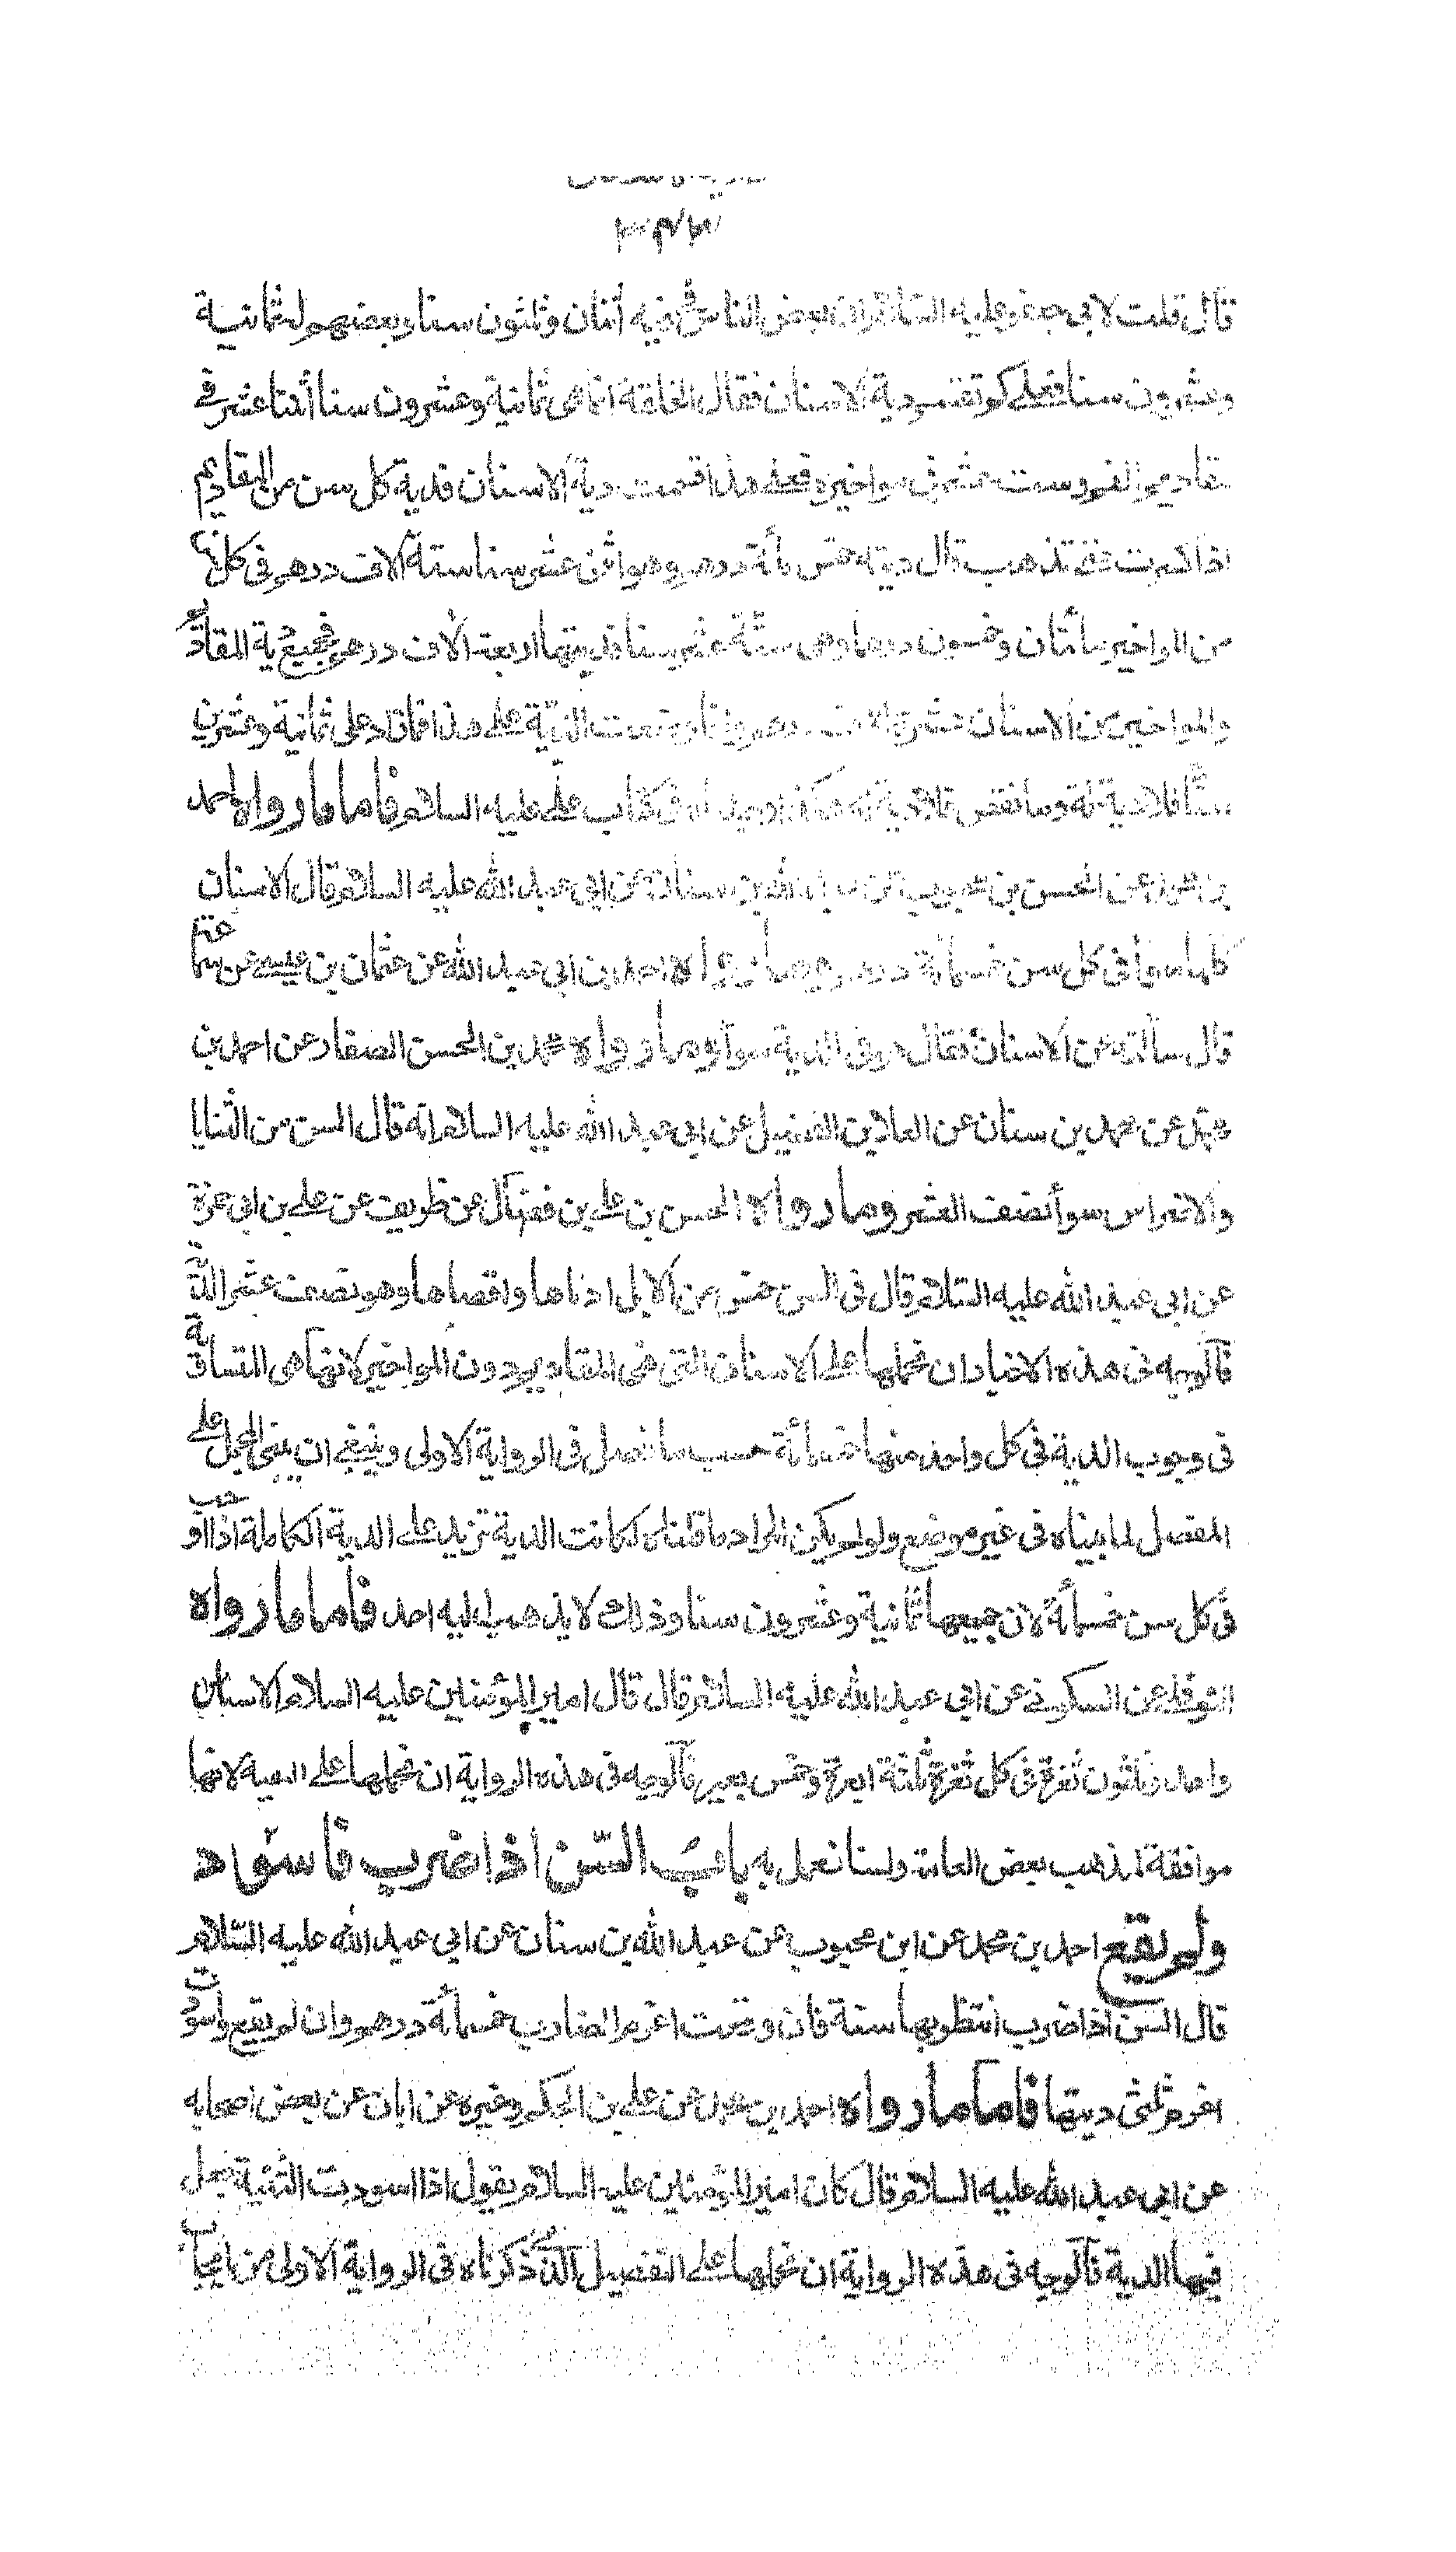 قال قلت لابي جعفر عليه السلام ان بعض الناس في فيه اثنان وثلثون سنا وبعضهم له ثمانية
وعشرون سنا فعلى كم تقسم دية الاسنان فقال الخلقة انما هي ثمانية وعشرون سنا اثنتا عشر في
مقاديم الفم وست عشر في مواخيره فعلى هذا قسمت دية الاسنان فدية كل سن من المقاديم
اذا كسرت حتى تذهب قال ديته خمس مأة درهم وهو اثنى عشر سنا ستة آلاف درهم في كل سن
من المواخير مأتان وخمسون درهما وهى ستة عشر سنا فديتها اربعة آلاف درهم فجميع دية المقاديم
والمواخير من الاسنان عشرة آلاف درهم وانما وضعت الدية على هذا فما زاد على ثمانية وعشرين
سنا فلا دية له وما نقص فلا دية له هكذا وجدناه في كتاب علي عليه السلام فاما ما رواه احمد
بن محمد عن الحسن بن محبوب عن عبد الله بن سنان عن ابي عبد الله عليه السلام قال الاسنان
كلها سوأ في كل سن خمسمأة درهم وما رواه احمد بن ابي عبد الله عن عثمان بن عيسى عن سماعة
قال سألته عن الاسنان فقال هي في الدية سوآ وما رواه محمد بن الحسن الصفار عن احمد بن
محمد عن محمد بن سنان عن العلا بن الفضيل عن ابي عبد الله عليه السلام انه قال السن من الثنايا
والاضراس سوأ نصف العشر وما رواه الحسن بن علي بن فضال عن ظريف عن علي بن ابي حمزة
عن ابي عبد الله عليه السلام قال في السن خمس من الابل ادناها واقصاها وهو نصف عشر الدية
فالوجه في هذه الاخبار ان نحملها على الاسنان التي هي المقاديم دون المواخير لانها هي المتساوية
في وجوب الدية في كل واحد منها خمسمأة حسب ما فصل في الرواية الاولى وينبغي ان يبنى المجمل على
المفصل لما بيناه في غير موضع ولو لم يكن المراد ما قلناه لكانت الدية تزيد على الدية الكاملة اذا اوجب
في كل سن خمسمأة لان جميعها ثمانية وعشرون سنا وذلك لا يذهب اليه احد فاما ما رواه
النوفلي عن السكوني عن ابي عبد الله عليه السلام قال قال امير المؤمنين عليه السلام الاسنان
واحد وثلثون ثغرة في كل ثغرة ثلثة ابعرة وخمس بعير فالوجه في هذه الرواية ان نحملها على التقية لانها
موافقة لمذهب بعض العامة ولسنا نعمل به باب السن اذا ضرب فاسواد
ولم يقع احمد بن محمد عن ابن محبوب عن عبد الله بن سنان عن ابي عبد الله عليه السلام
قال السن اذا ضرب انتظر بها سنة فان وقعت اغرم الضارب خمسمأة درهم وان لم يقع واسودت
اغرم ثلثى ديتها فاما ما رواه احمد بن محمد عن علي بن الحكم وغيره عن ابان عن بعض اصحابه
عن ابي عبد الله عليه السلام قال كان امير المؤمنين عليه السلام يقول اذا اسودت الثنية جعل
فيها الدية فالوجه في هذه الرواية ان نحملها على التفصيل الذي ذكرناه في الرواية الاولى من ايجاب